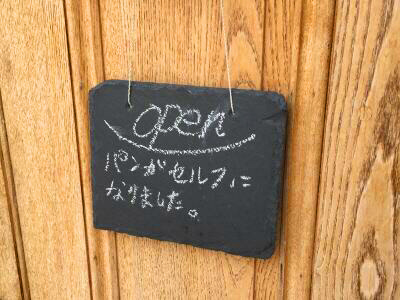 open
パンがセルフに
なりました。